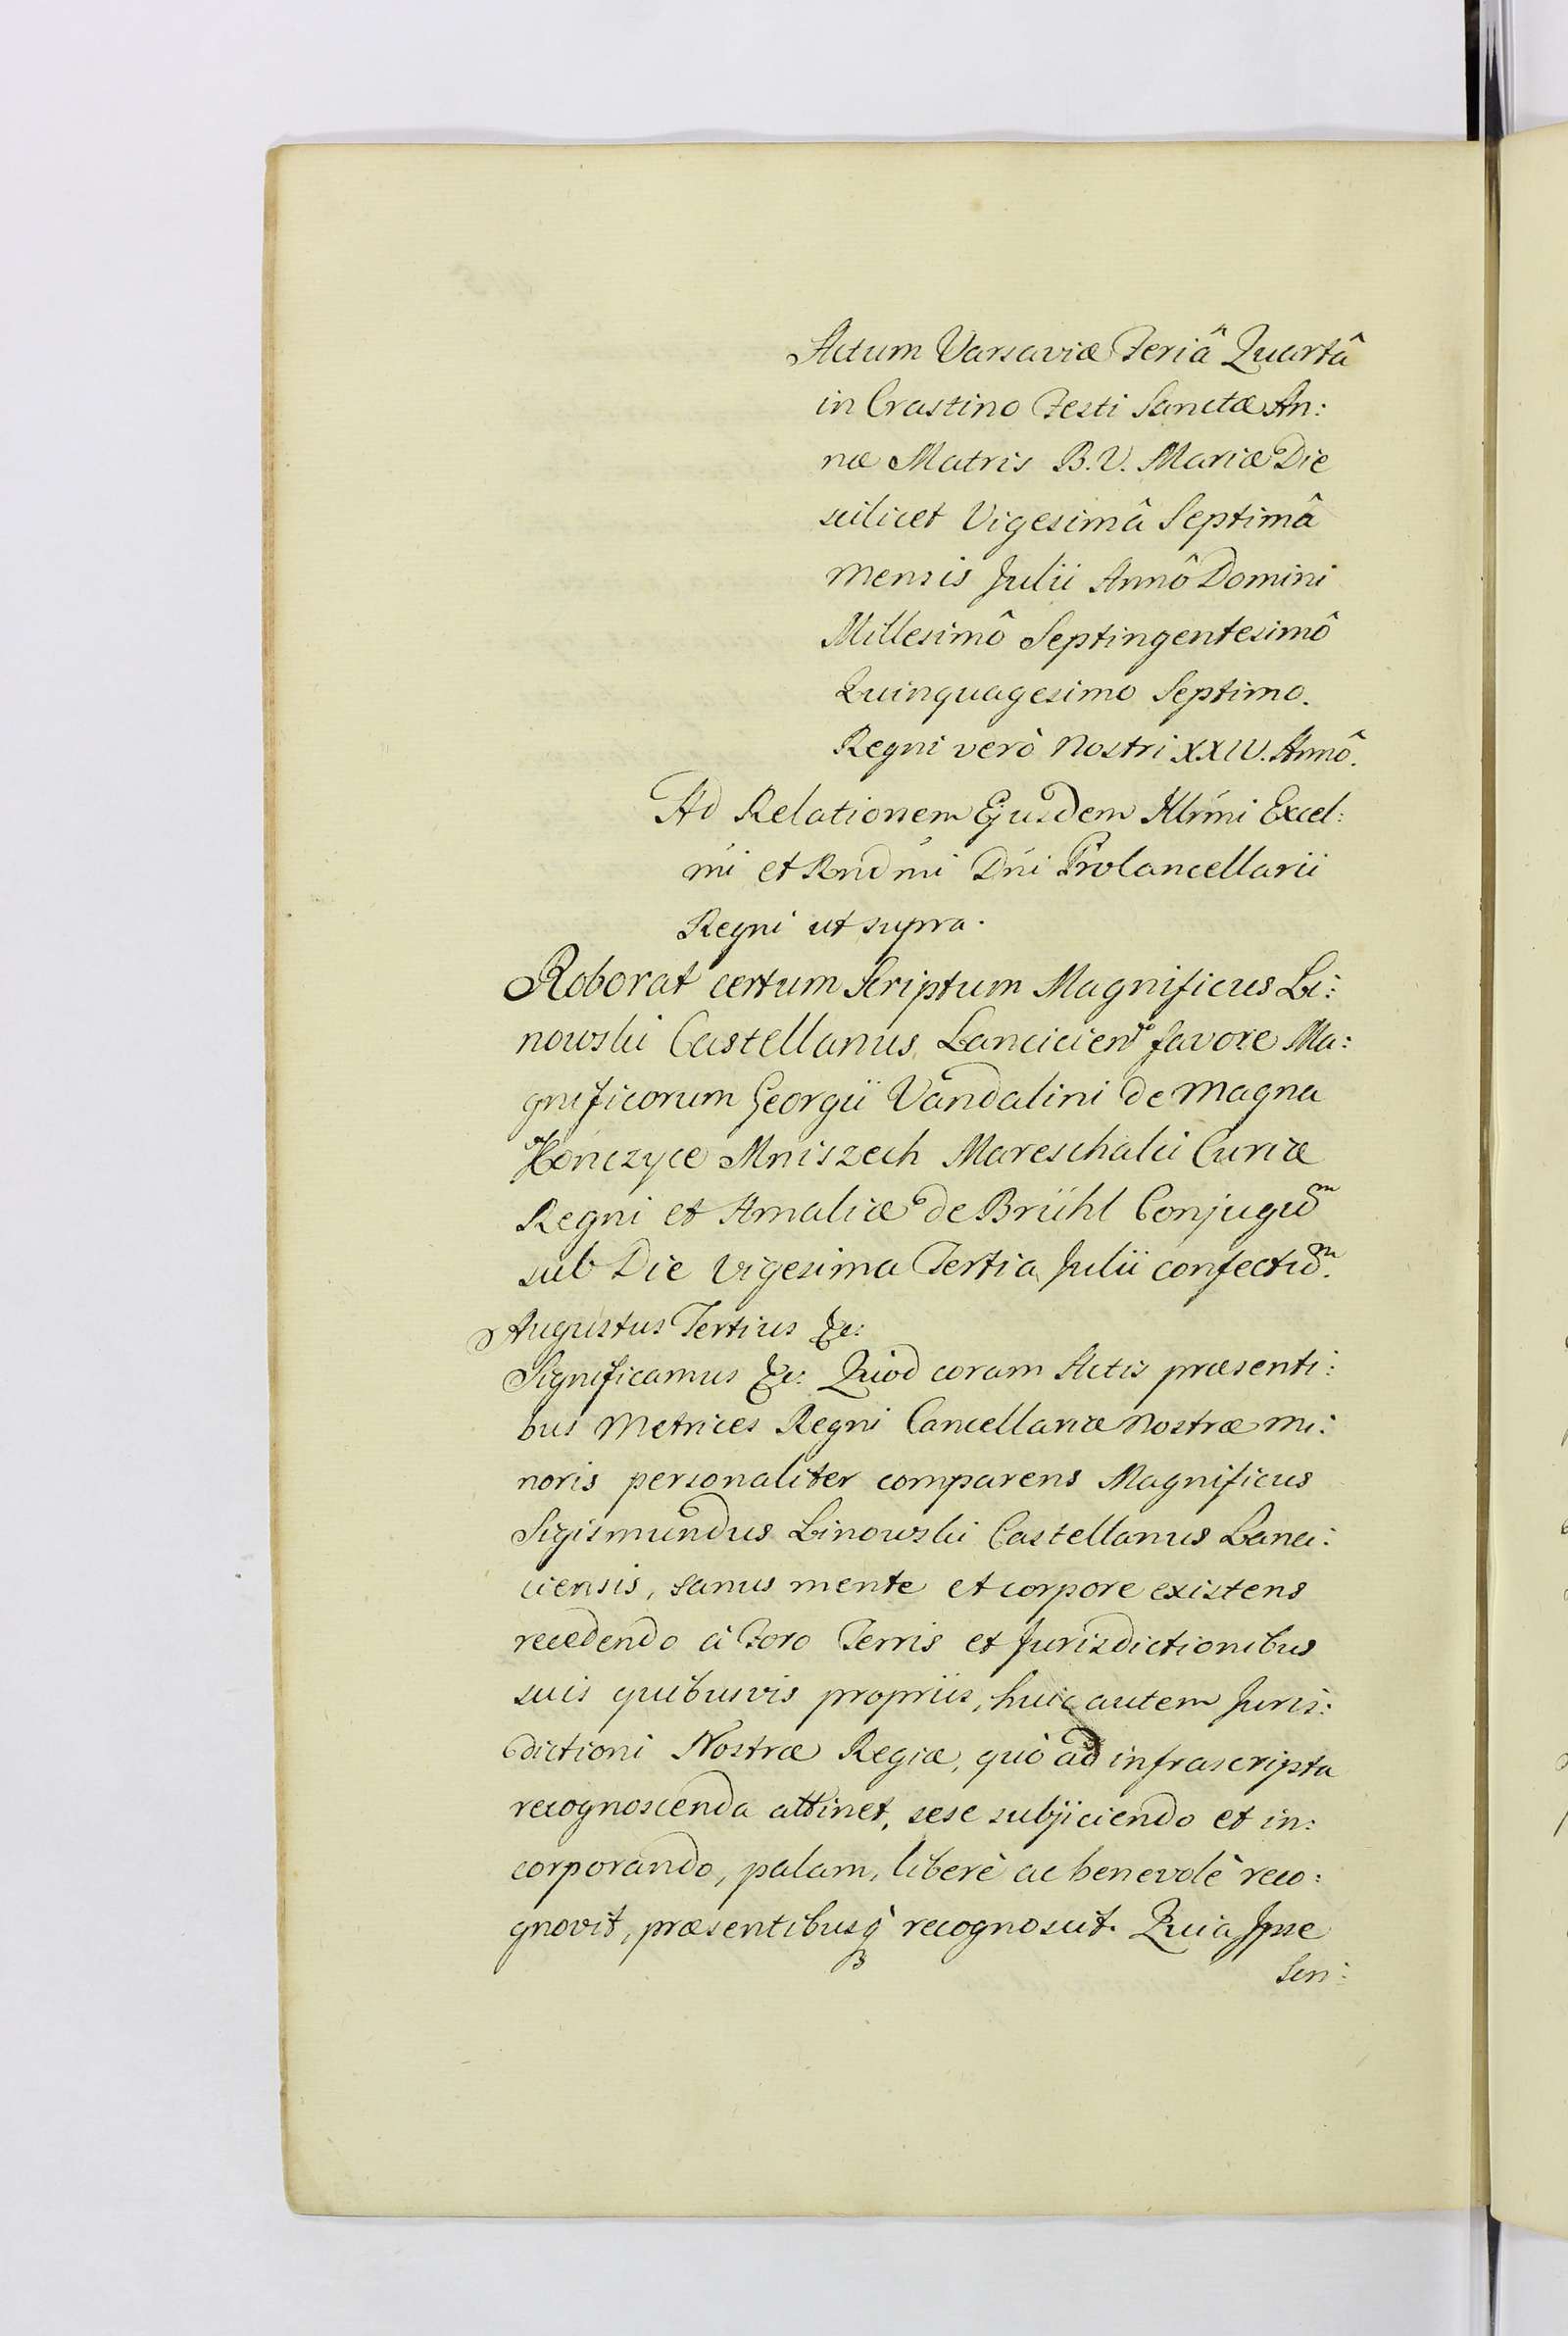 Actum Varsaviæ Feriâ Quartâ
in Crastino Festi Sanctæ An:
næ Matris B.V. Mariæ Die
scilicet Vigesimâ Septimâ
mensis Julii Annô Domini
Millesimô Septingentesimô
Quinquagesimo Septimo.
Regni verò Nostri XXIV. Annô.
Ad Relationem Ejusdem Illrmi Excel:
mi et Rndmi Dni Procancellarii
Regni ut supra.
Roborat certum Scriptum Magnificus Li:
nowski Castellanus Lancicien favore Ma:
gnificorum Georgii Vandalini de magna
Kończyce Mniszech Mareschalci Curiæ
Regni et Amaliæ de Brühl Conjugum
sub Die Vigesima Tertia Julii confectum.
Augustus Tertius &c:
Significamus &c: Quod coram Actis præsenti:
bus Metrices Regni Cancellariæ Nostræ mi:
noris personaliter comparens Magnificus
Sigismundus Linowski Castellanus Lanci:
ciensis, sanus mente et corpore existens
recedendo à Foro Terris et Jurisdictionibus
suis quibusvis propriis, huic autem Juris:
dictioni Nostræ Regiæ, quò ad infrascripta
recognoscenda attinet, sese subjiciendo et in:
corporando, palam, liberè ac benevolè reco:
gnovit, præsentibusq̀ recognoscit. Quia Ipse
Sen: